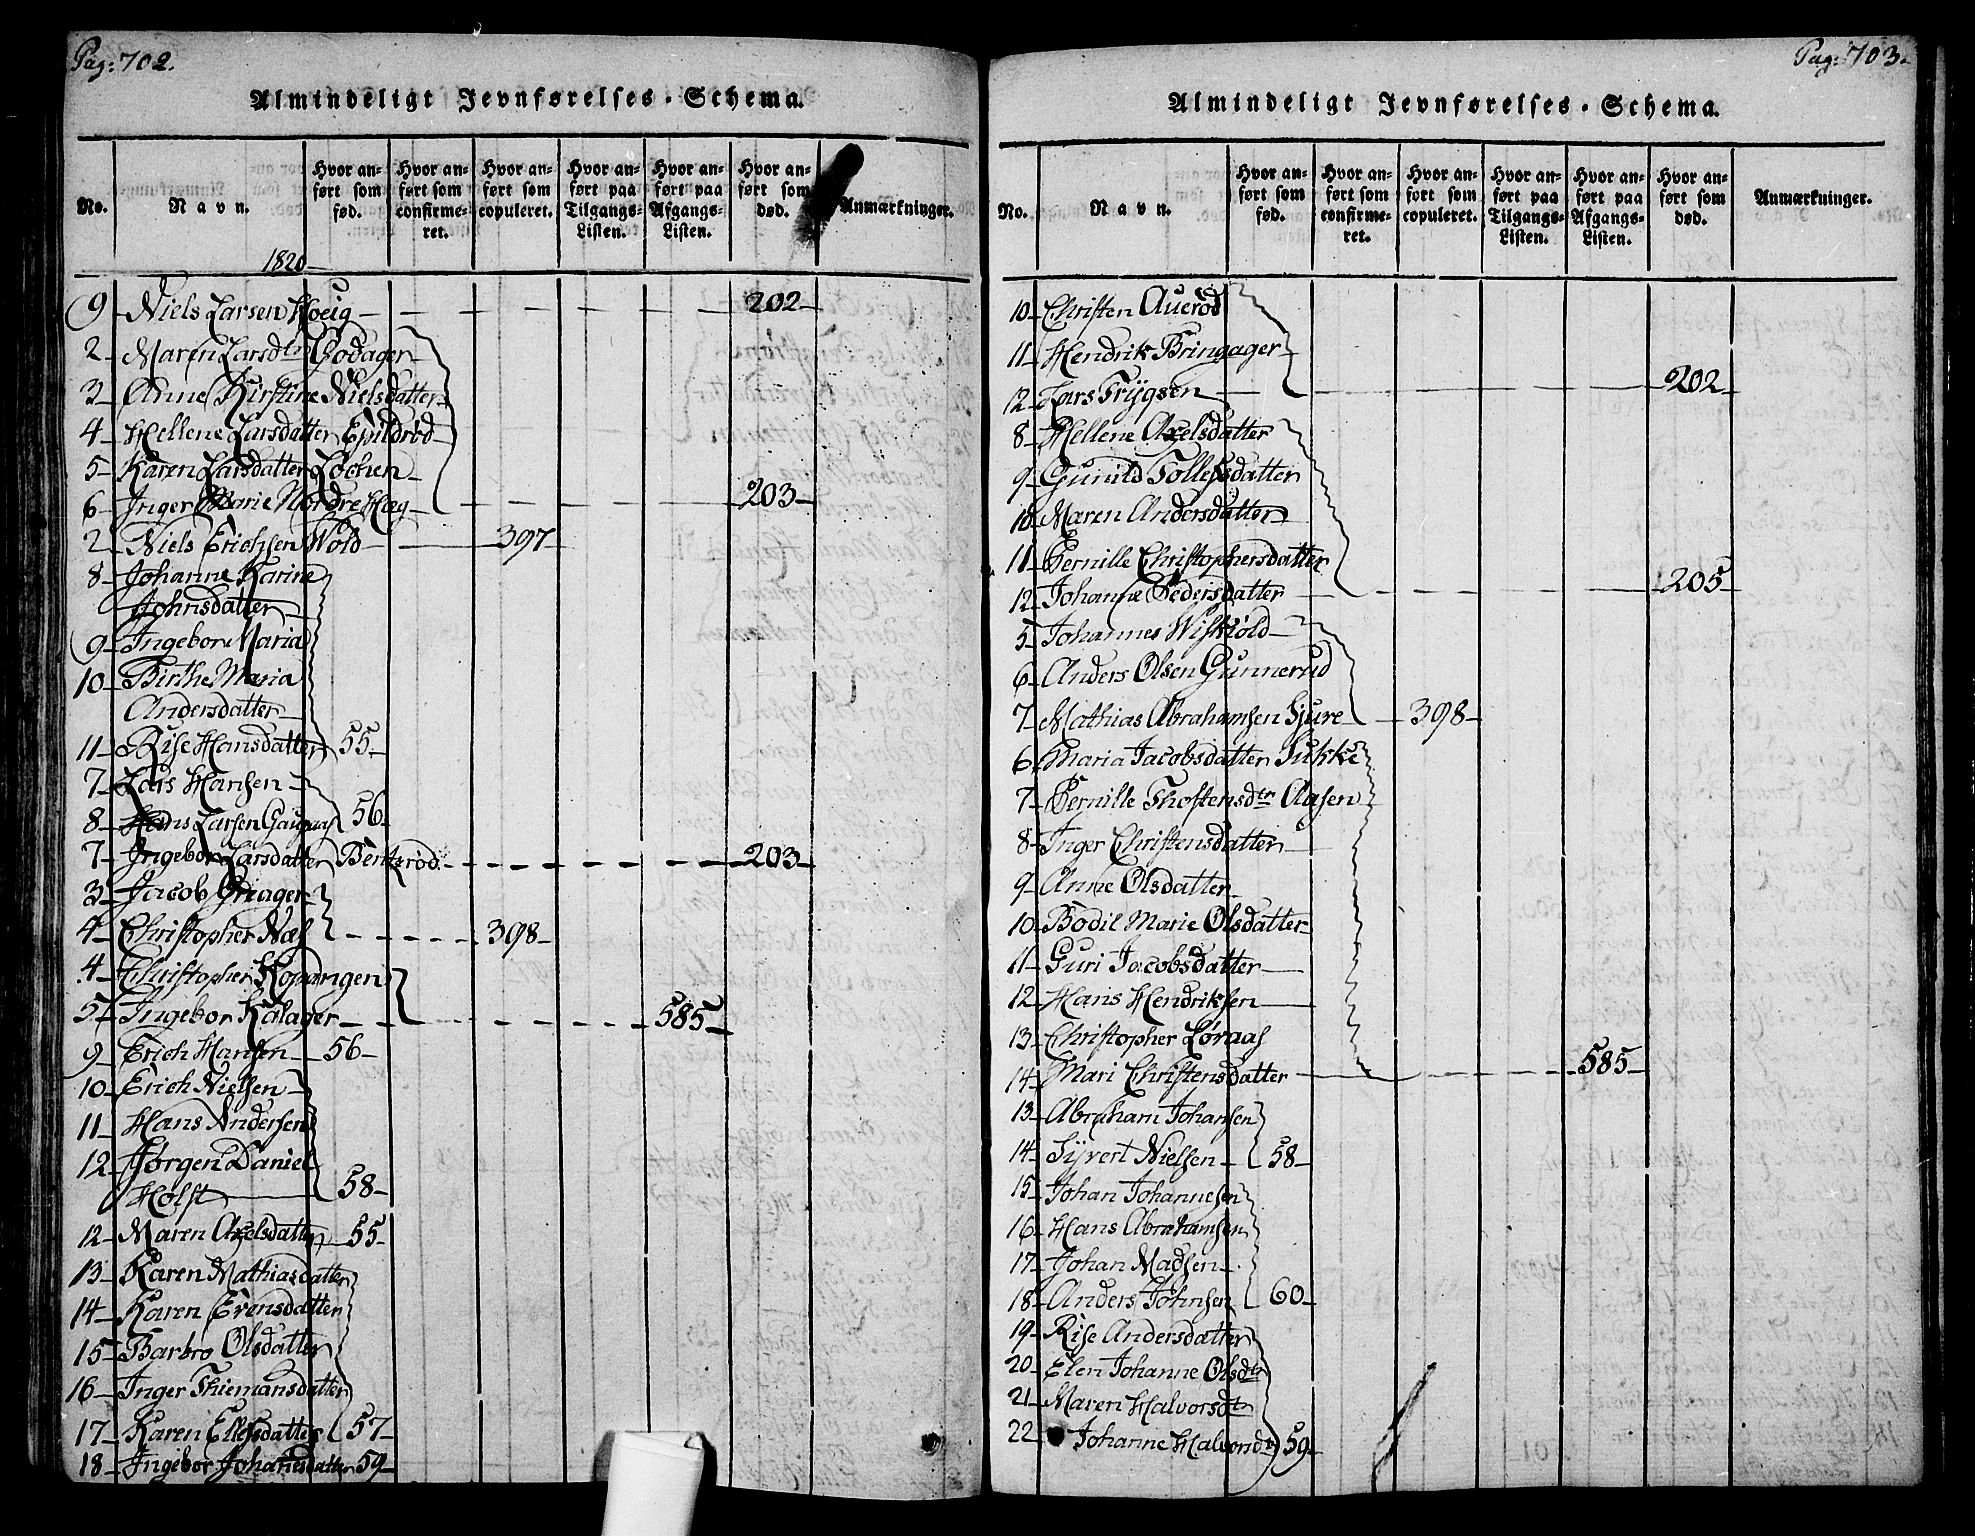 Pag: 702.
Almindeligt Jevnførelses-Schema.
No.
Navn.
Hvor anført som fød.
Hvor anført som confirmeret.
Hvor anført som copuleret.
Hvor anført paa Tilgangs-Listen.
Hvor anført paa Afgangs-Listen.
Hvor anført som død.
Anmærkninger.
1820
9 Niels Larsen Hoeig 202
2 Maren Larsdtr Godager
3 Anne Kirstine Nielsdatter
4 Hellene Larsdatter Ejvildrød
5 Karen Larsdatter Løchen
6 Inger Marie Nordre Høeg 203
2 Niels Erichsen Wold 397
8 Johanne Karine
Johnsdatter
9 Ingebor Maria
10 Birthe Maria
Andersdatter
11 Rise Hansdatter 55
7 Lars Hansen
8 Hans Larsen Gaupaas 56
7 Ingebor Larsdatter Bentzrød 203
3 Jacob Griager
4 Christopher Næs 398
4 Christopher Kopangen
5 Ingebor Kalager 585
9 Erich Hansen 56
10 Erich Nielsen
11 Hans Andersen
12 Jørgen Daniel
Holst 58
12 Maren Axelsdatter 55
13 Karen Mathiasdatter
14 Karen Evensdatter
15 Barbro Olsdatter
16 Inger Thiemansdatter
17 Karen Ellefsdatter 57
18 Ingebor Johanesdatter 59
Pag: 703.
Almindeligt Jevnførelses-Schema.
No.
Navn.
Hvor anført som fød.
Hvor anført som confirmeret.
Hvor anført som copuleret.
Hvor anført paa Tilgangs-Listen.
Hvor anført paa Afgangs-Listen.
Hvor anført som død.
Anmærkninger.
10 Christen Auerød
11 Hendrik Bringager
12 Lars Trygsen 202
8 Hellene Axelsdatter
9 Gunild Tollefsdatter
10 Maren Andersdatter
11 Pernille Christophersdatter
12 Johanne Pedersdatter 205
5 Johannes Wiskiøld
6 Anders Olsen Gunnerud
7 Mathias Abrahamsen Gjure 398
6 Maria Jacobsdatter Sukke
7 Pernille Thostensdtr Aasen
8 Inger Christensdatter
9 Anne Olsdatter
10 Bodil Marie Olsdatter
11 Guri Jacobsdatter
12 Hans Hendriksen
13 Christopher Løraas
14 Mari Christensdatter 585
13 Abraham Johansen
14 Syvert Nielsen 58
15 Johan Johannesen
16 Hans Abrahamsen
17 Johan Madsen
18 Anders Johnsen 60
19 Rise Andersdatter
20 Elen Johanne Olsdtr
21 Maren Halvorsdt
22 Johanne Halvorsdt 59